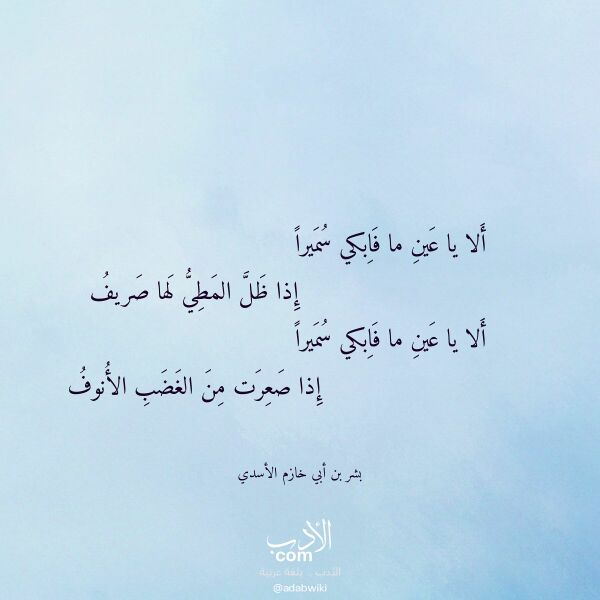 أَلا يا عَينِ ما فَاِبكي سُمَيراً
إِذا ظَلَّ المَطِيُّ لَها صَريفُ
أَلا يا عَينِ ما فَاِبكي سُمَيراً
إِذا صَعِرَت مِنَ الغَضَبِ الأُنوفُ
بشر بن أبي خازم الأسدي
الأدب
com
الأدب .. بلغة عربية
@adabwiki